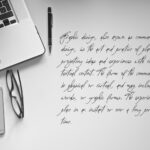 Graphic design, also known as communication
design, is the art and practice of planning and
projecting ideas and experiences with visual and
textual content. The form of the communication
is physical or virtual, and may include images,
words, or graphic forms. The experience can take
place in an instant or over a long period of
time.